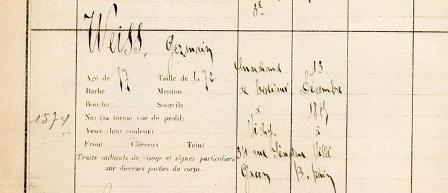 Weiss, Germain
Agé de 57 Taille de 1,72
Barbe Menton
Bouche Sourcils
Nez (sa forme vue de profil)
Yeux (leur couleur)
Front Cheveux Teint
Traits saillants du visage et signes particuliers
sur diverses parties du corps.
1574
Marchand
de bestiaux
à
Vichy
rue Sénateur
13
Décembre
à